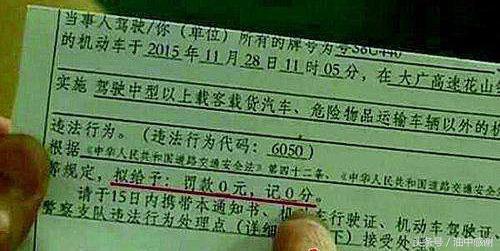 当事人驾驶/你（单位）所有的牌号为
的机动车于 2015 年 11 月 28 日 11 时 05 分，在 大广高速花山
实施 驾驶中型以上载客载货汽车、危险物品运输车辆以外的
违法行为。（违法行为代码： 6050 ）
根据《中华人民共和国道路交通安全法》第四十二条、《中华人民共
等规定，拟给予：罚款0元，记0分。
请于15日内携带本通知书、机动车行驶证、机动车驾驶证，
警察支队违法行为处理点（详细 下）接受
头条号 / 油中感谢